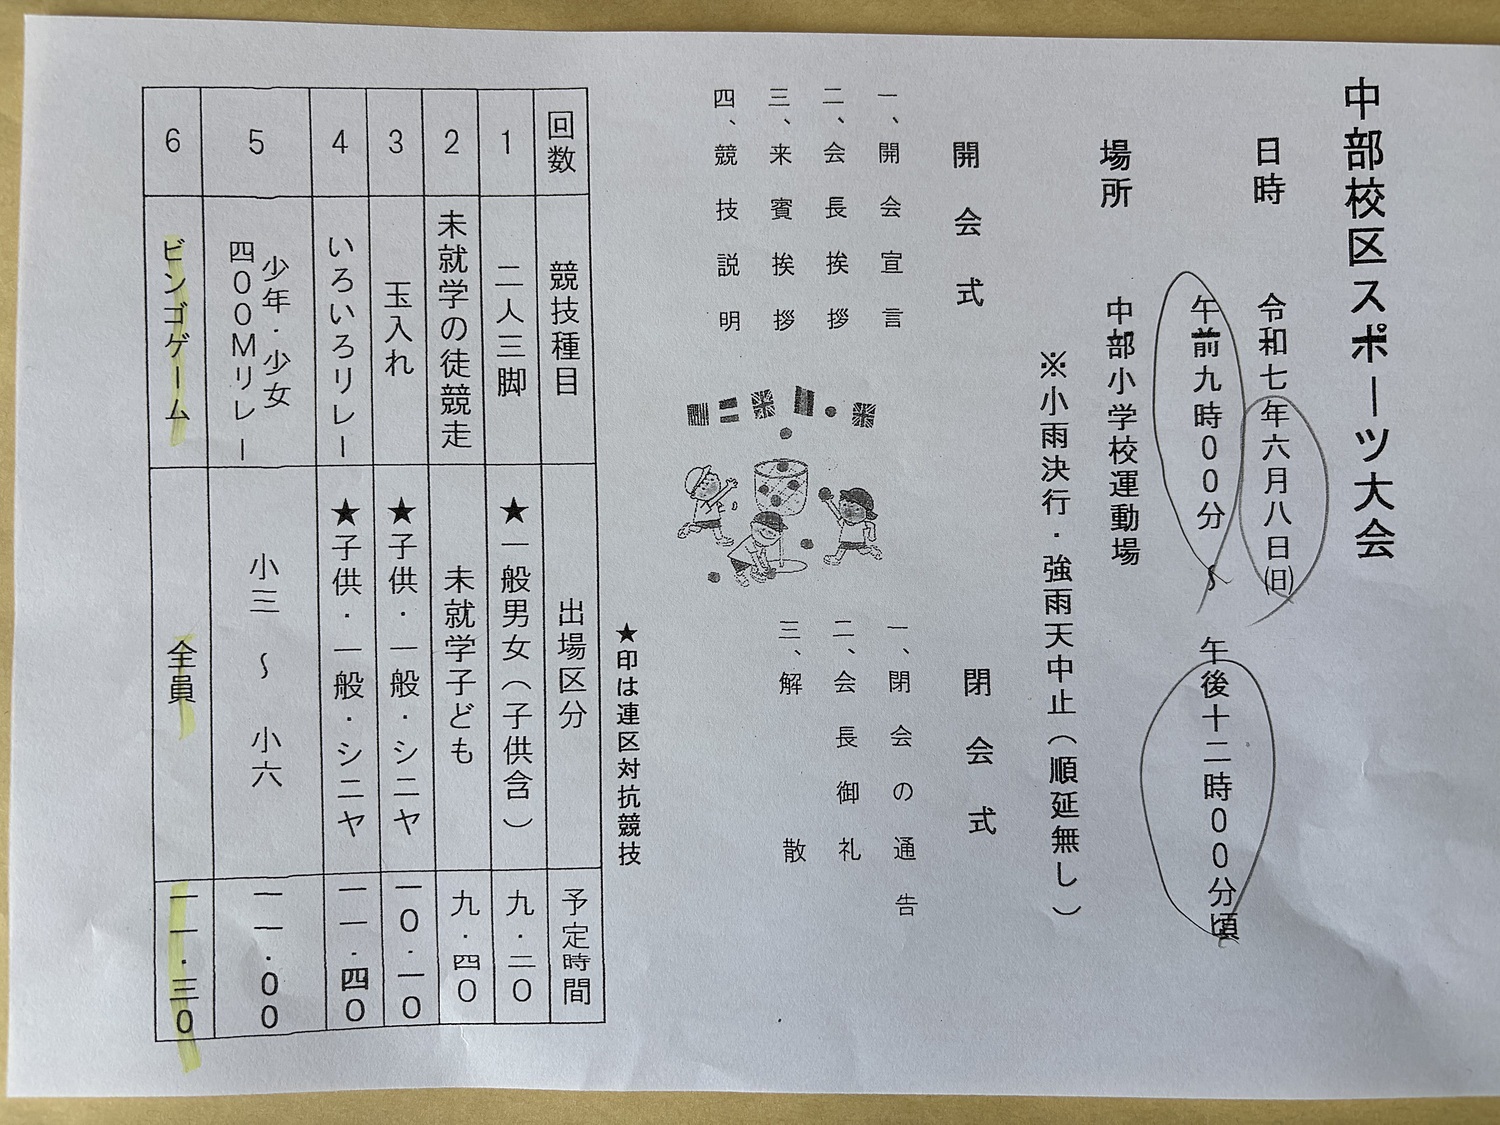 中部校区スポーツ大会
日時　令和七年六月八日(日)
午前九時00分　～　午後十二時00分頃
場所　中部小学校運動場
※小雨決行・強雨天中止（順延無し）
開会式
一、開会宣言
二、会長挨拶
三、来賓挨拶
四、競技説明
閉会式
一、閉会の通告
二、会長御礼
三、解散
★印は連区対抗競技
回数　競技種目　出場区分　予定時間
1　二人三脚　★一般男女（子供含）　九・二0
2　未就学の徒競走　未就学子ども　九・四0
3　玉入れ　★子供・一般・シニヤ　一0・一0
4　いろいろリレー　★子供・一般・シニヤ　一一・四0
5　少年・少女
四00Mリレー　小三　～　小六　一一・00
6　ビンゴゲーム　全員　一一・三0